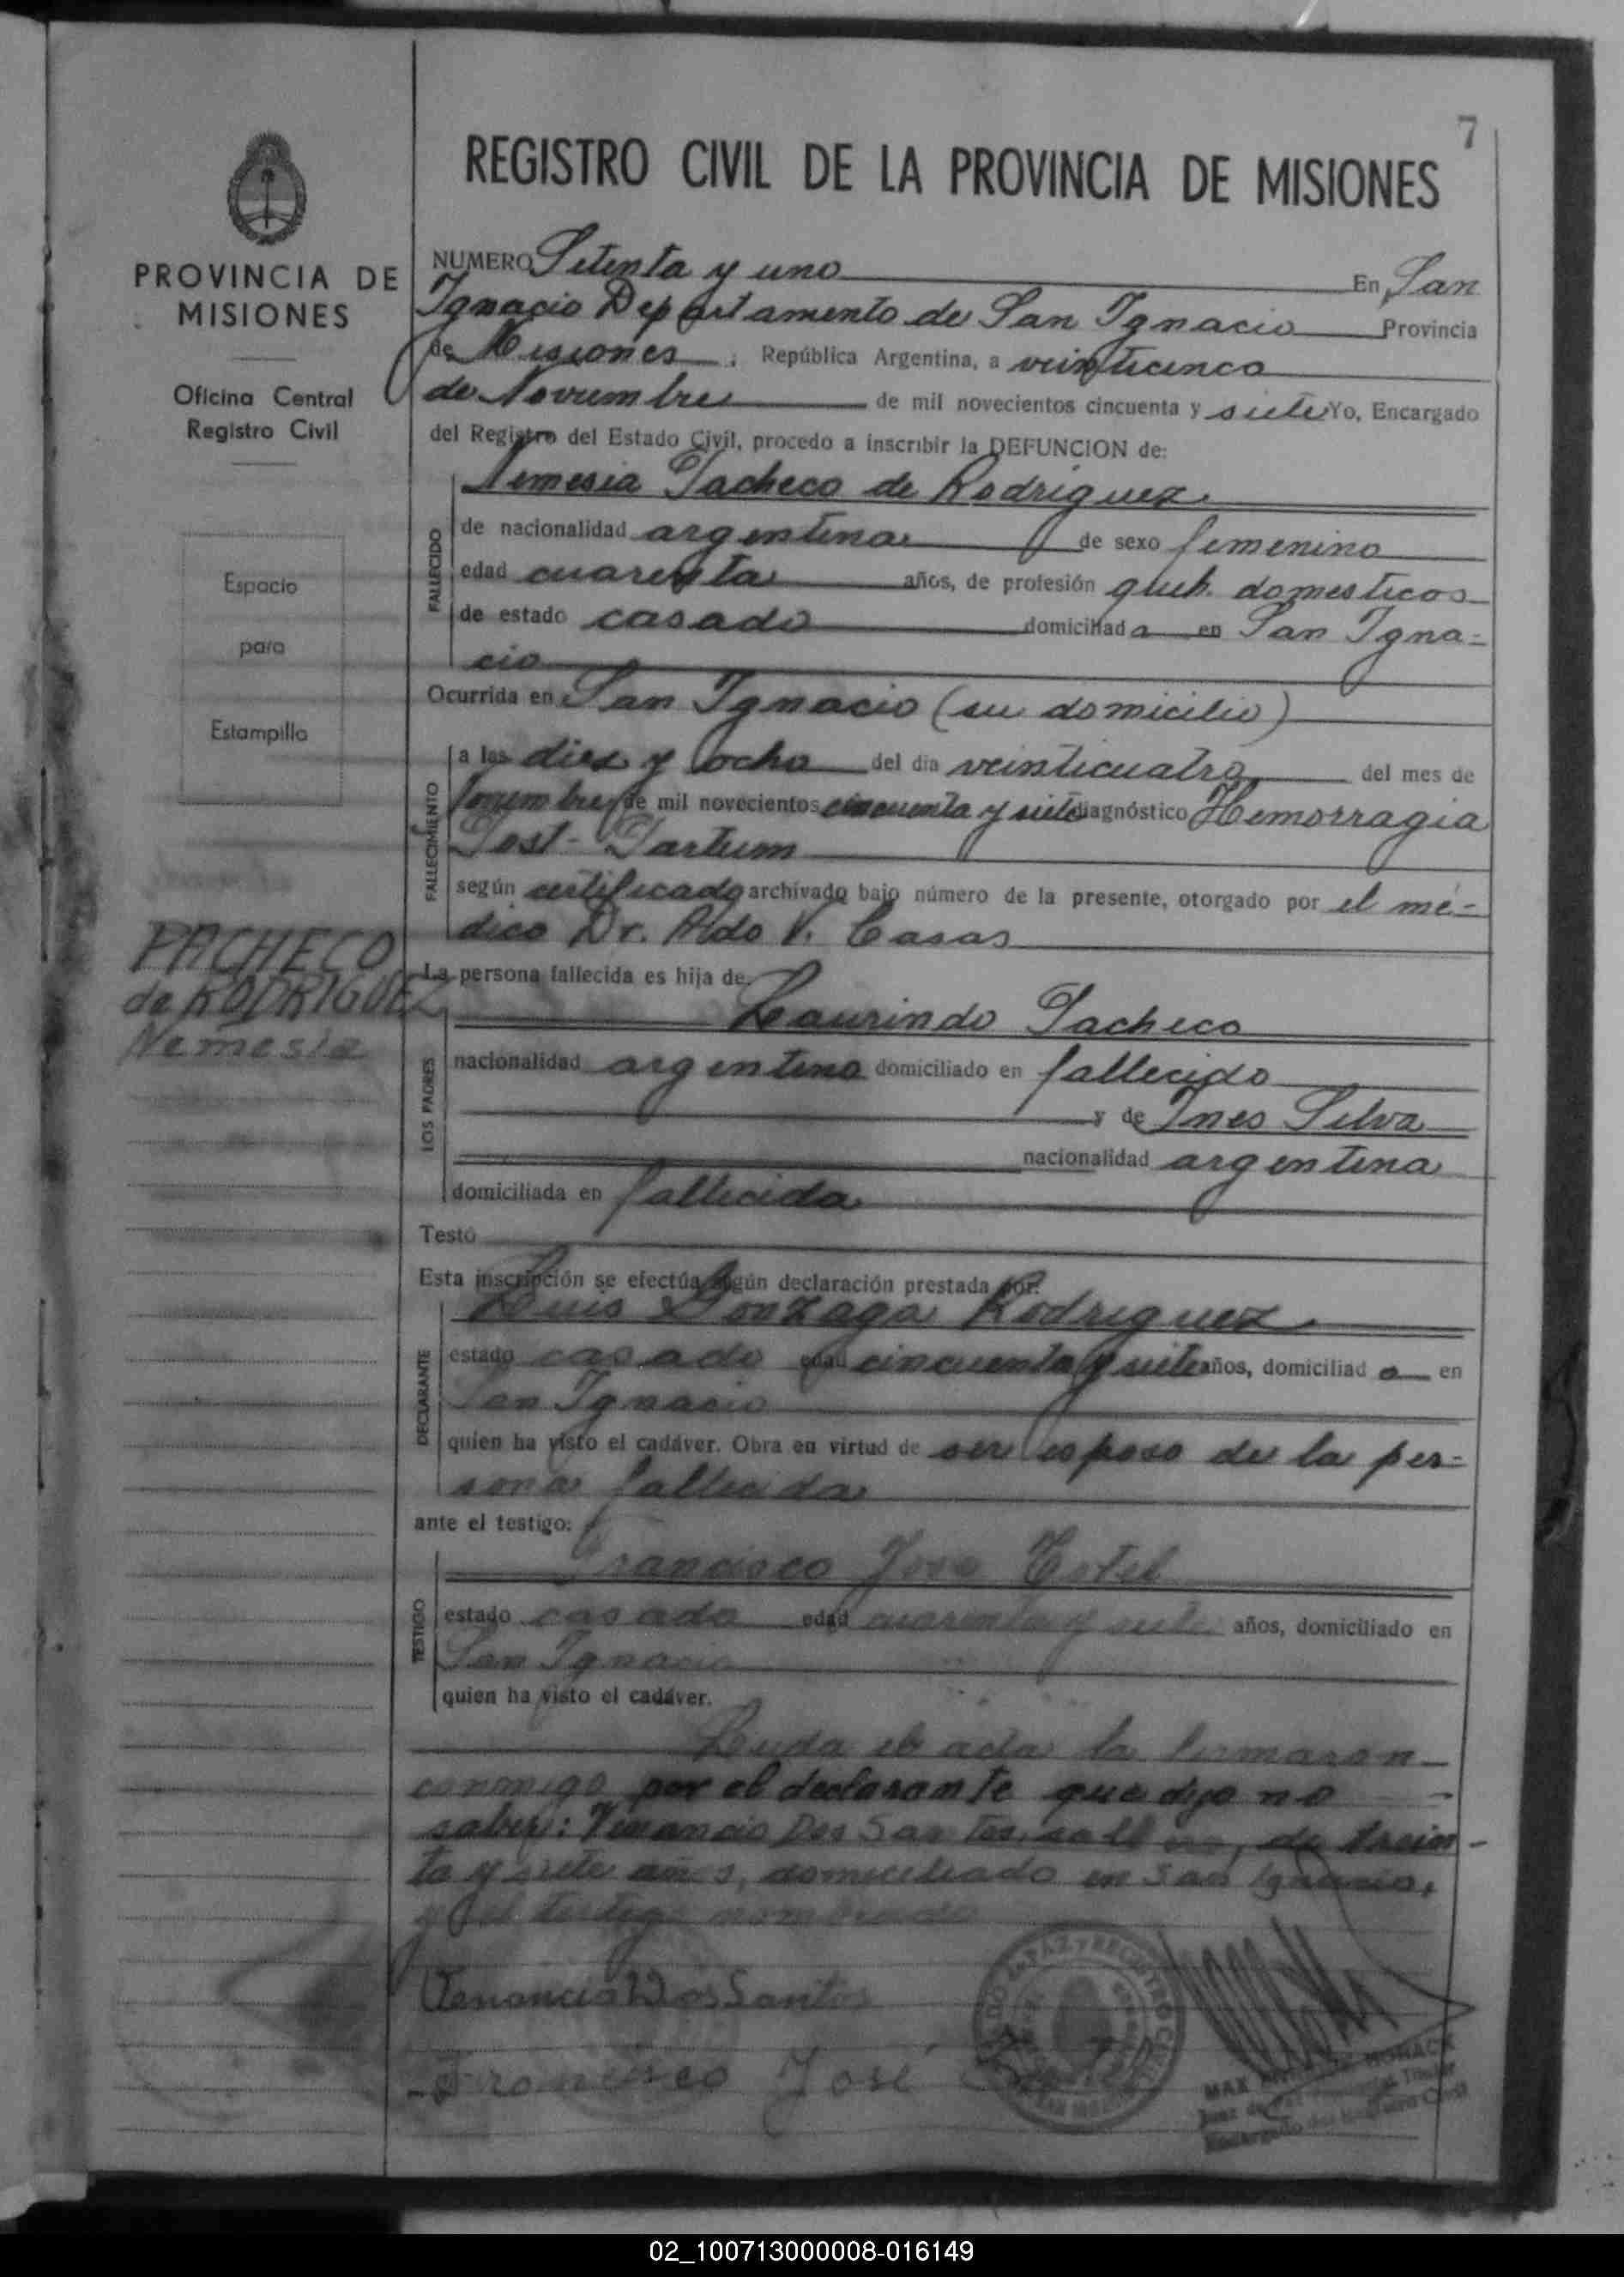 7
REGISTRO CIVIL DE LA PROVINCIA DE MISIONES
PROVINCIA DE
MISIONES
Oficina Central
Registro Civil
Espacio
para
Estampilla
PACHECO
de RODRIGUEZ
Nemesia
NUMERO Setenta y uno En San
Ignacio Departamento de San Ignacio Provincia
de Misiones, República Argentina, a veinticinco
de Noviembre de mil novecientos cincuenta y siete Yo, Encargado
del Registro del Estado Civil, procedo a inscribir la DEFUNCION de:
Nemesia Pacheco de Rodriguez
FALLECIDO
de nacionalidad argentina de sexo femenino
edad cuarenta años, de profesión queh. domesticos
de estado casada domiciliad a en San Igna-
cio
Ocurrida en San Ignacio (su domicilio)
FALLECIMIENTO
a las diez y ocho del día veinticuatro del mes de
Noviembre de mil novecientos cincuenta y siete diagnóstico Hemorragia
Post-Partum
según certificado archivado bajo número de la presente, otorgado por el mé-
dico Dr. Aldo V. Casas
La persona fallecida es hija de:
LOS PADRES
Laurindo Pacheco
nacionalidad argentino domiciliado en fallecido
y de Ines Silva
nacionalidad argentina
domiciliada en fallecida
Testó
Esta inscripción se efectúa según declaración prestada por:
DECLARANTE
Luis Gonzaga Rodriguez
estado casado edad cincuenta y siete años, domiciliad o en
San Ignacio
quien ha visto el cadáver. Obra en virtud de ser esposo de la per-
sona fallecida
ante el testigo:
TESTIGO
Francisco Jose
estado casado edad cuarenta y siete años, domiciliado en
San Ignacio
quien ha visto el cadáver.
Leida el acta la firmaran
conmigo por el declarante que dijo no
saber: Venancio Dos Santos, de trein-
ta y siete años, domiciliado en San Ignacio,
y el testigo nombrado
Venancio Dos Santos
Francisco José
MAX
02_100713000008-016149